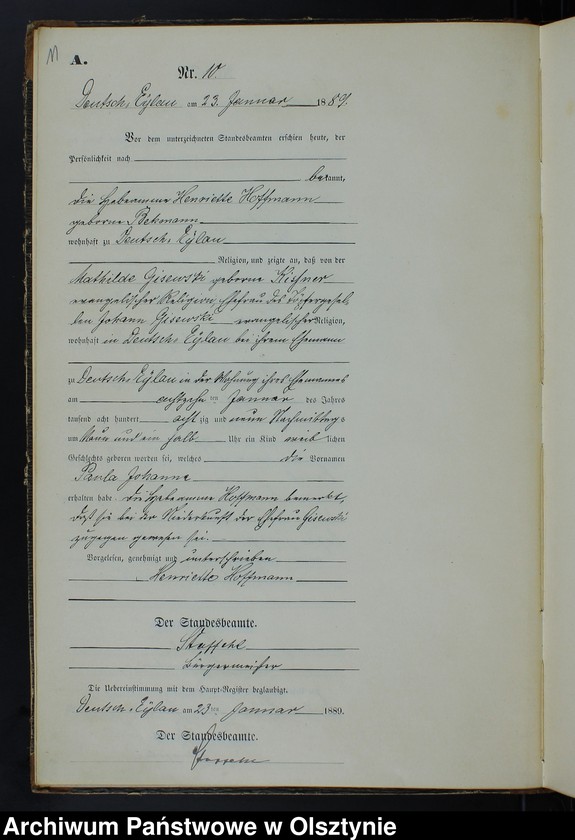 11
A.
Nr. 10.
Deutsch. Eylau am 23. Januar 1889.
Vor dem unterzeichneten Standesbeamten erschien heute, der
Persönlichkeit nach
bekannt,
die Hebeamme Henriette Hoffmann
geborne Bekmann
wohnhaft zu Deutsch. Eylau
Religion, und zeigte an, daß von der
Mathilde Gisewski geborne Kißner
evangelischer Religion, Ehefrau des Töpfergesel-
len Johann Gisewski evangelischer Religion,
wohnhaft in Deutsch. Eylau bei ihrem Ehemann
zu Deutsch. Eylau in der Wohnung ihres Ehemannes
am achtzehnten Januar des Jahres
tausend acht hundert achtzig und neun Nachmittags
um Neun und ein halb Uhr ein Kind weiblichen
Geschlechts geboren worden sei, welches die Vornamen
Paula Johanna
erhalten habe. Die Hebeamme Hoffmann bemerkt,
daß sie bei der Niederkunft der Ehefrau Gisewski
zugegen gewesen sei.
Vorgelesen, genehmigt und unterschrieben
Henriette Hoffmann
Der Standesbeamte.
Bürgermeister
Die Uebereinstimmung mit dem Haupt-Register beglaubigt.
Deutsch. Eylau am 23ten Januar 1889.
Der Standesbeamte.
Archiwum Państwowe w Olsztynie